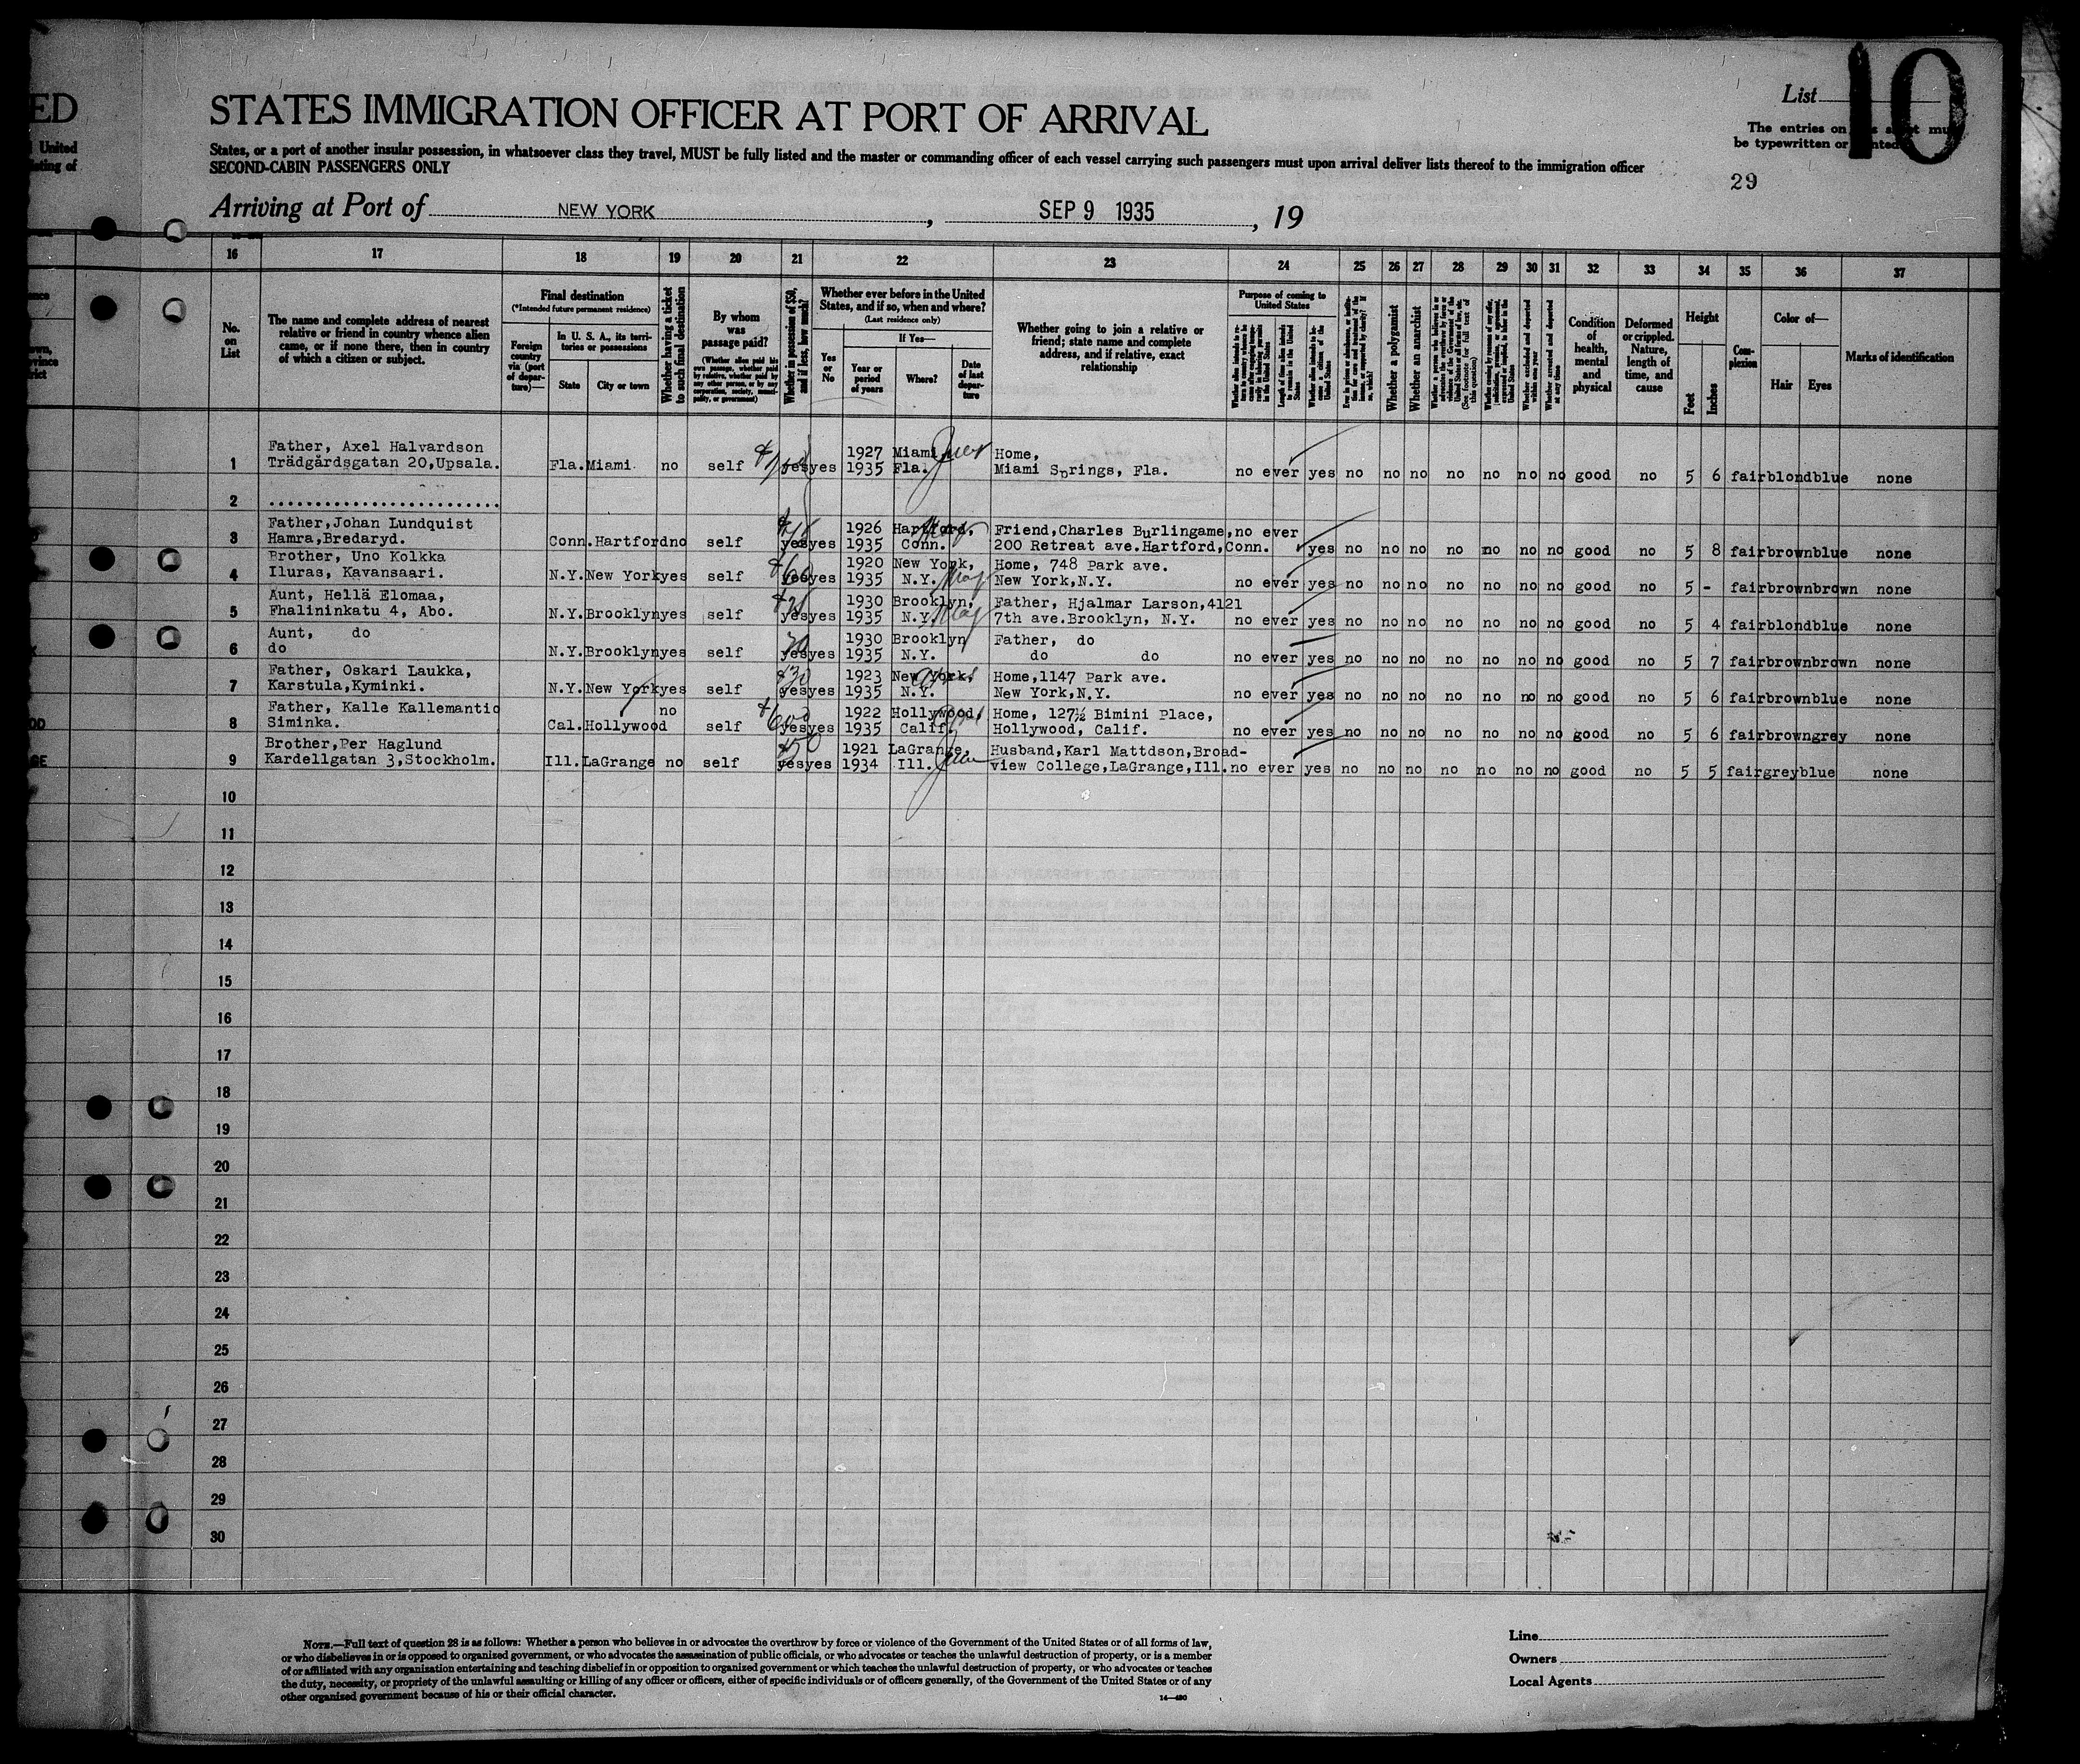 ED
United
STATES IMMIGRATION OFFICER AT PORT OF ARRIVAL
States, or a port of another insular possession, in whatsoever class they travel, MUST be fully listed and the master or commanding officer of each vessel carrying such passengers must upon arrival deliver lists thereof to the immigration officer
SECOND-CABIN PASSENGERS ONLY
List 10
The entries on
be typewritten or
29
Arriving at Port of NEW YORK, SEP 9 1935, 19
16 17 18 19 20 21 22 23 24 25 26 27 28 29 30 31 32 33 34 35 36 37
No. on List
The name and complete address of nearest relative or friend in country whence alien came, or if none there, then in country of which a citizen or subject.
Final destination
(*Intended future permanent residence)
Foreign country via (port of departure)—
In U. S. A., its territories or possessions
State City or town
Whether having a ticket to such final destination
By whom was passage paid?
(Whether alien paid his own passage, whether paid by relative, whether paid by any other person, or by any corporation, society, municipality, or government)
Whether in possession of $50, and if less, how much?
Whether ever before in the United States, and if so, when and where?
(Last residence only)
Yes or No
If Yes—
Year or period of years
Where?
Date of last departure
Whether going to join a relative or friend; state name and complete address, and if relative, exact relationship
Purpose of coming to United States
Length of time alien intends to remain in the United States
Whether a polygamist
Whether an anarchist
(See footnote for full text of this question)
Whether arrested and deported at any time
Condition of health, mental and physical
Deformed or crippled. Nature, length of time, and cause
Height
Feet Inches
Complexion
Color of—
Hair Eyes
Marks of identification
Father, Axel Halvardson 1927 Miami Home,
1 Trädgårdsgatan 20,Upsala. Fla. Miami no self yes yes 1935 Fla. Miami Springs, Fla. no ever yes no no no no no no no good no 5 6 fair blond blue none
2 ..........................
Father,Johan Lundquist 1926 Hartford, Friend,Charles Burlingame,no ever
3 Hamra,Bredaryd. Conn. Hartford no self yes yes 1935 Conn. 200 Retreat ave.Hartford,Conn. yes no no no no no no no good no 5 8 fair brown blue none
Brother, Uno Kolkka 1920 New York, Home, 748 Park ave.
4 Iluras, Kavansaari. N.Y. New York yes self yes yes 1935 N.Y. New York,N.Y. no ever yes no no no no no no no good no 5 - fair brown brown none
Aunt, Hellä Elomaa, 1930 Brooklyn, Father, Hjalmar Larson,4121
5 Fhalininkatu 4, Abo. N.Y. Brooklyn yes self yes yes 1935 N.Y. 7th ave.Brooklyn, N.Y. no ever yes no no no no no no no good no 5 4 fair blond blue none
Aunt, do 1930 Brooklyn Father, do
6 do N.Y. Brooklyn yes self yes yes 1935 N.Y. do do no ever yes no no no no no no no good no 5 7 fair brown brown none
Father, Oskari Laukka, 1923 New York. Home,1147 Park ave.
7 Karstula,Kyminki. N.Y. New York yes self $30 yes yes 1935 N.Y. New York,N.Y. no ever yes no no no no no no no good no 5 6 fair brown blue none
Father, Kalle Kallemantio no 1922 Hollywood, Home, 127½ Bimini Place,
8 Siminka. Cal. Hollywood self yes yes 1935 Calif. Hollywood, Calif. no ever yes no no no no no no no good no 5 6 fair brown grey none
Brother,Per Haglund $50 1921 LaGrange, Husband,Karl Mattdson,Broad-
9 Kardellgatan 3,Stockholm. Ill. LaGrange no self yes yes 1934 Ill. view College,LaGrange,Ill. no ever yes no no no no no no no good no 5 5 fair grey blue none
10
11
12
13
14
15
16
17
18
19
20
21
22
23
24
25
26
27
28
29
30
NOTE.—Full text of question 28 is as follows: Whether a person who believes in or advocates the overthrow by force or violence of the Government of the United States or of all forms of law,
or who disbelieves in or is opposed to organized government, or who advocates the assassination of public officials, or who advocates or teaches the unlawful destruction of property, or is a member
of or affiliated with any organization entertaining and teaching disbelief in or opposition to organized government or which teaches the unlawful destruction of property, or who advocates or teaches
the duty, necessity, or propriety of the unlawful assaulting or killing of any officer or officers, either of specific individuals or of officers generally, of the Government of the United States or of any
other organized government because of his or their official character.
14—480
Line
Owners
Local Agents